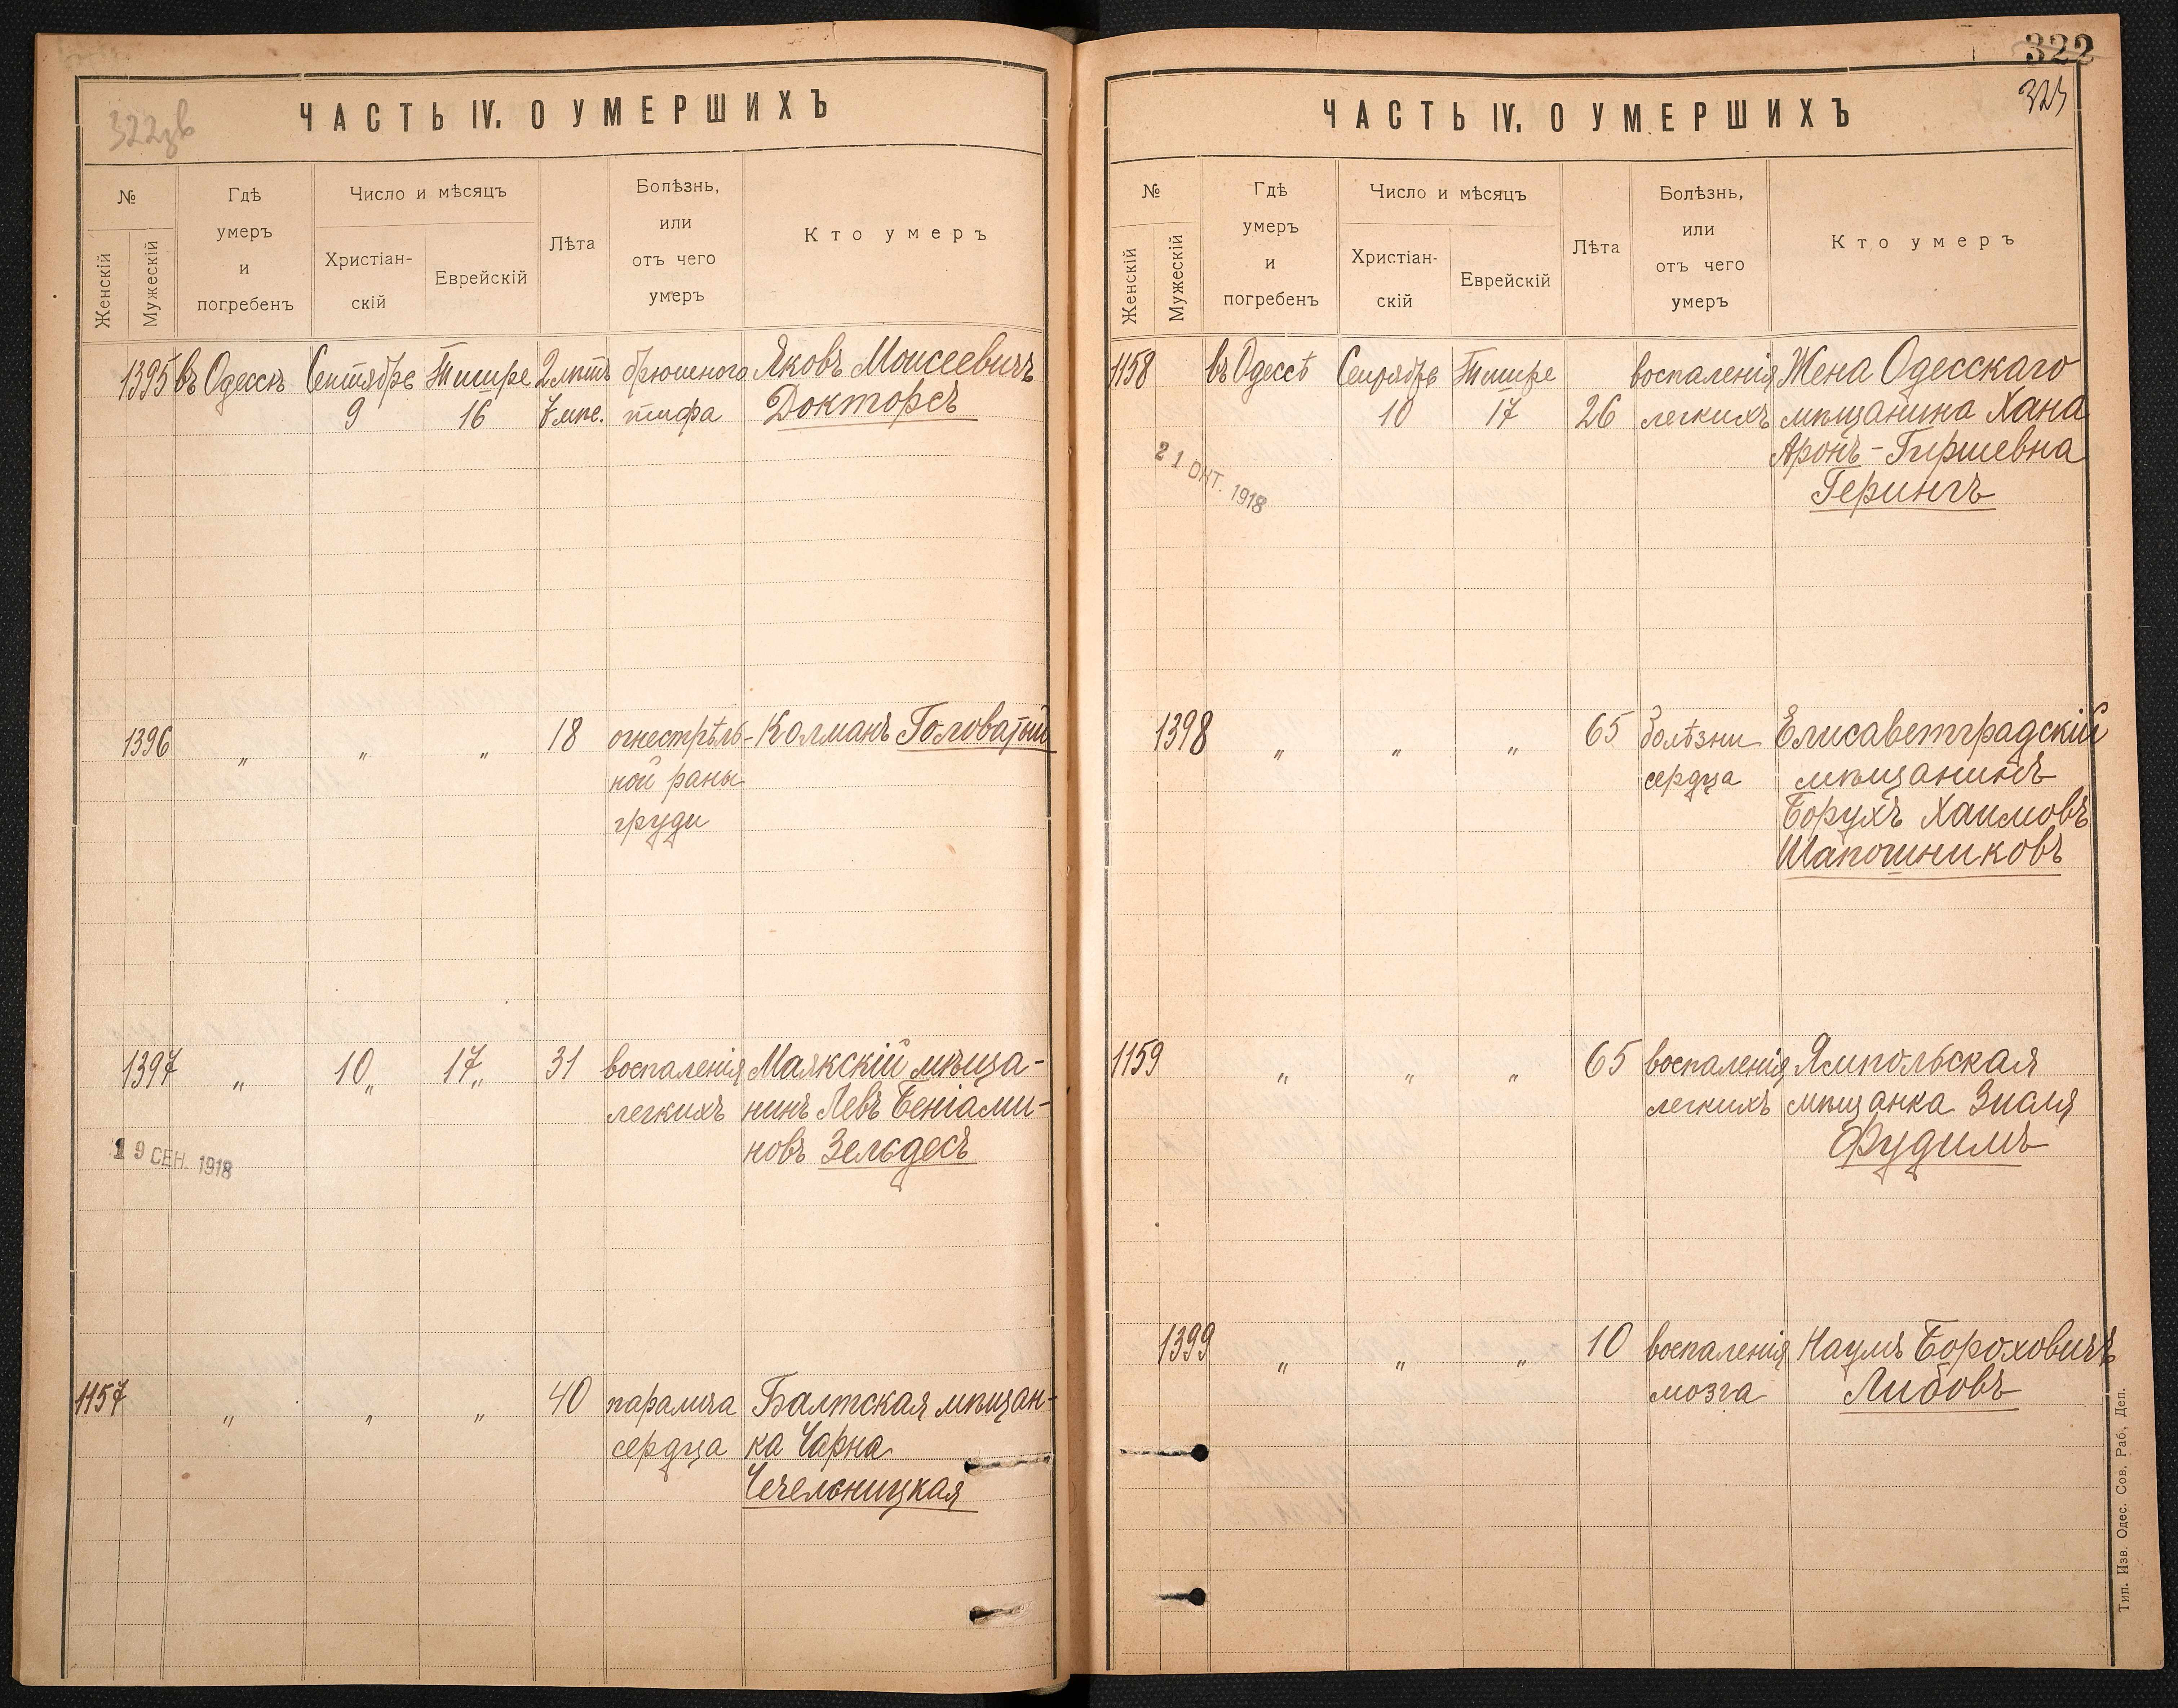 322зв
ЧАСТЬ IV. О УМЕРШИХЪ
№
Женскій
Мужескій
Гдѣ
умеръ
и
погребенъ
Число и мѣсяцъ
Христіан-
скій
Еврейскій
Лѣта
Болѣзнь,
или
отъ чего
умеръ
Кто умеръ
1395 въ Одессѣ Сентябрь Тишре 2 лѣтъ брюшного Яковъ Моисеевичъ
9 16 7 мѣс. тифа Докторсъ
1396 " " " 18 огнестрѣль- Колманъ Головатый
ной раны
груди
1397 " 10 " 17 " 31 воспаленія Маякскій мѣща-
легкихъ нинъ Левъ Беніами-
новъ Зельдесъ
19 СЕН. 1918
1157 " " " 40 паралича Балтская мѣщан-
сердца ка Чарна
Чечельницкая
322
323
ЧАСТЬ IV. О УМЕРШИХЪ
№
Женскій
Мужескій
Гдѣ
умеръ
и
погребенъ
Число и мѣсяцъ
Христіан-
скій
Еврейскій
Лѣта
Болѣзнь,
или
отъ чего
умеръ
Кто умеръ
1158 въ Одессѣ Сентябрь Тишре воспаленія Жена Одесскаго
10 17 26 легкихъ мѣщанина Хана
Аронъ-Гиршевна
Герингъ
21 ОКТ. 1918
1398 " " " 65 болѣзни Елисаветградскій
сердца мѣщанинъ
Борухъ Хаимовъ
Шапошниковъ
1159 " " " 65 воспаленія Ямпольская
легкихъ мѣщанка Зисля
Фудимъ
1399 " " " 10 воспаленія Наумъ Бороховичъ
мозга Либовъ
Тип. Изв. Одес. Сов. Раб. Деп.